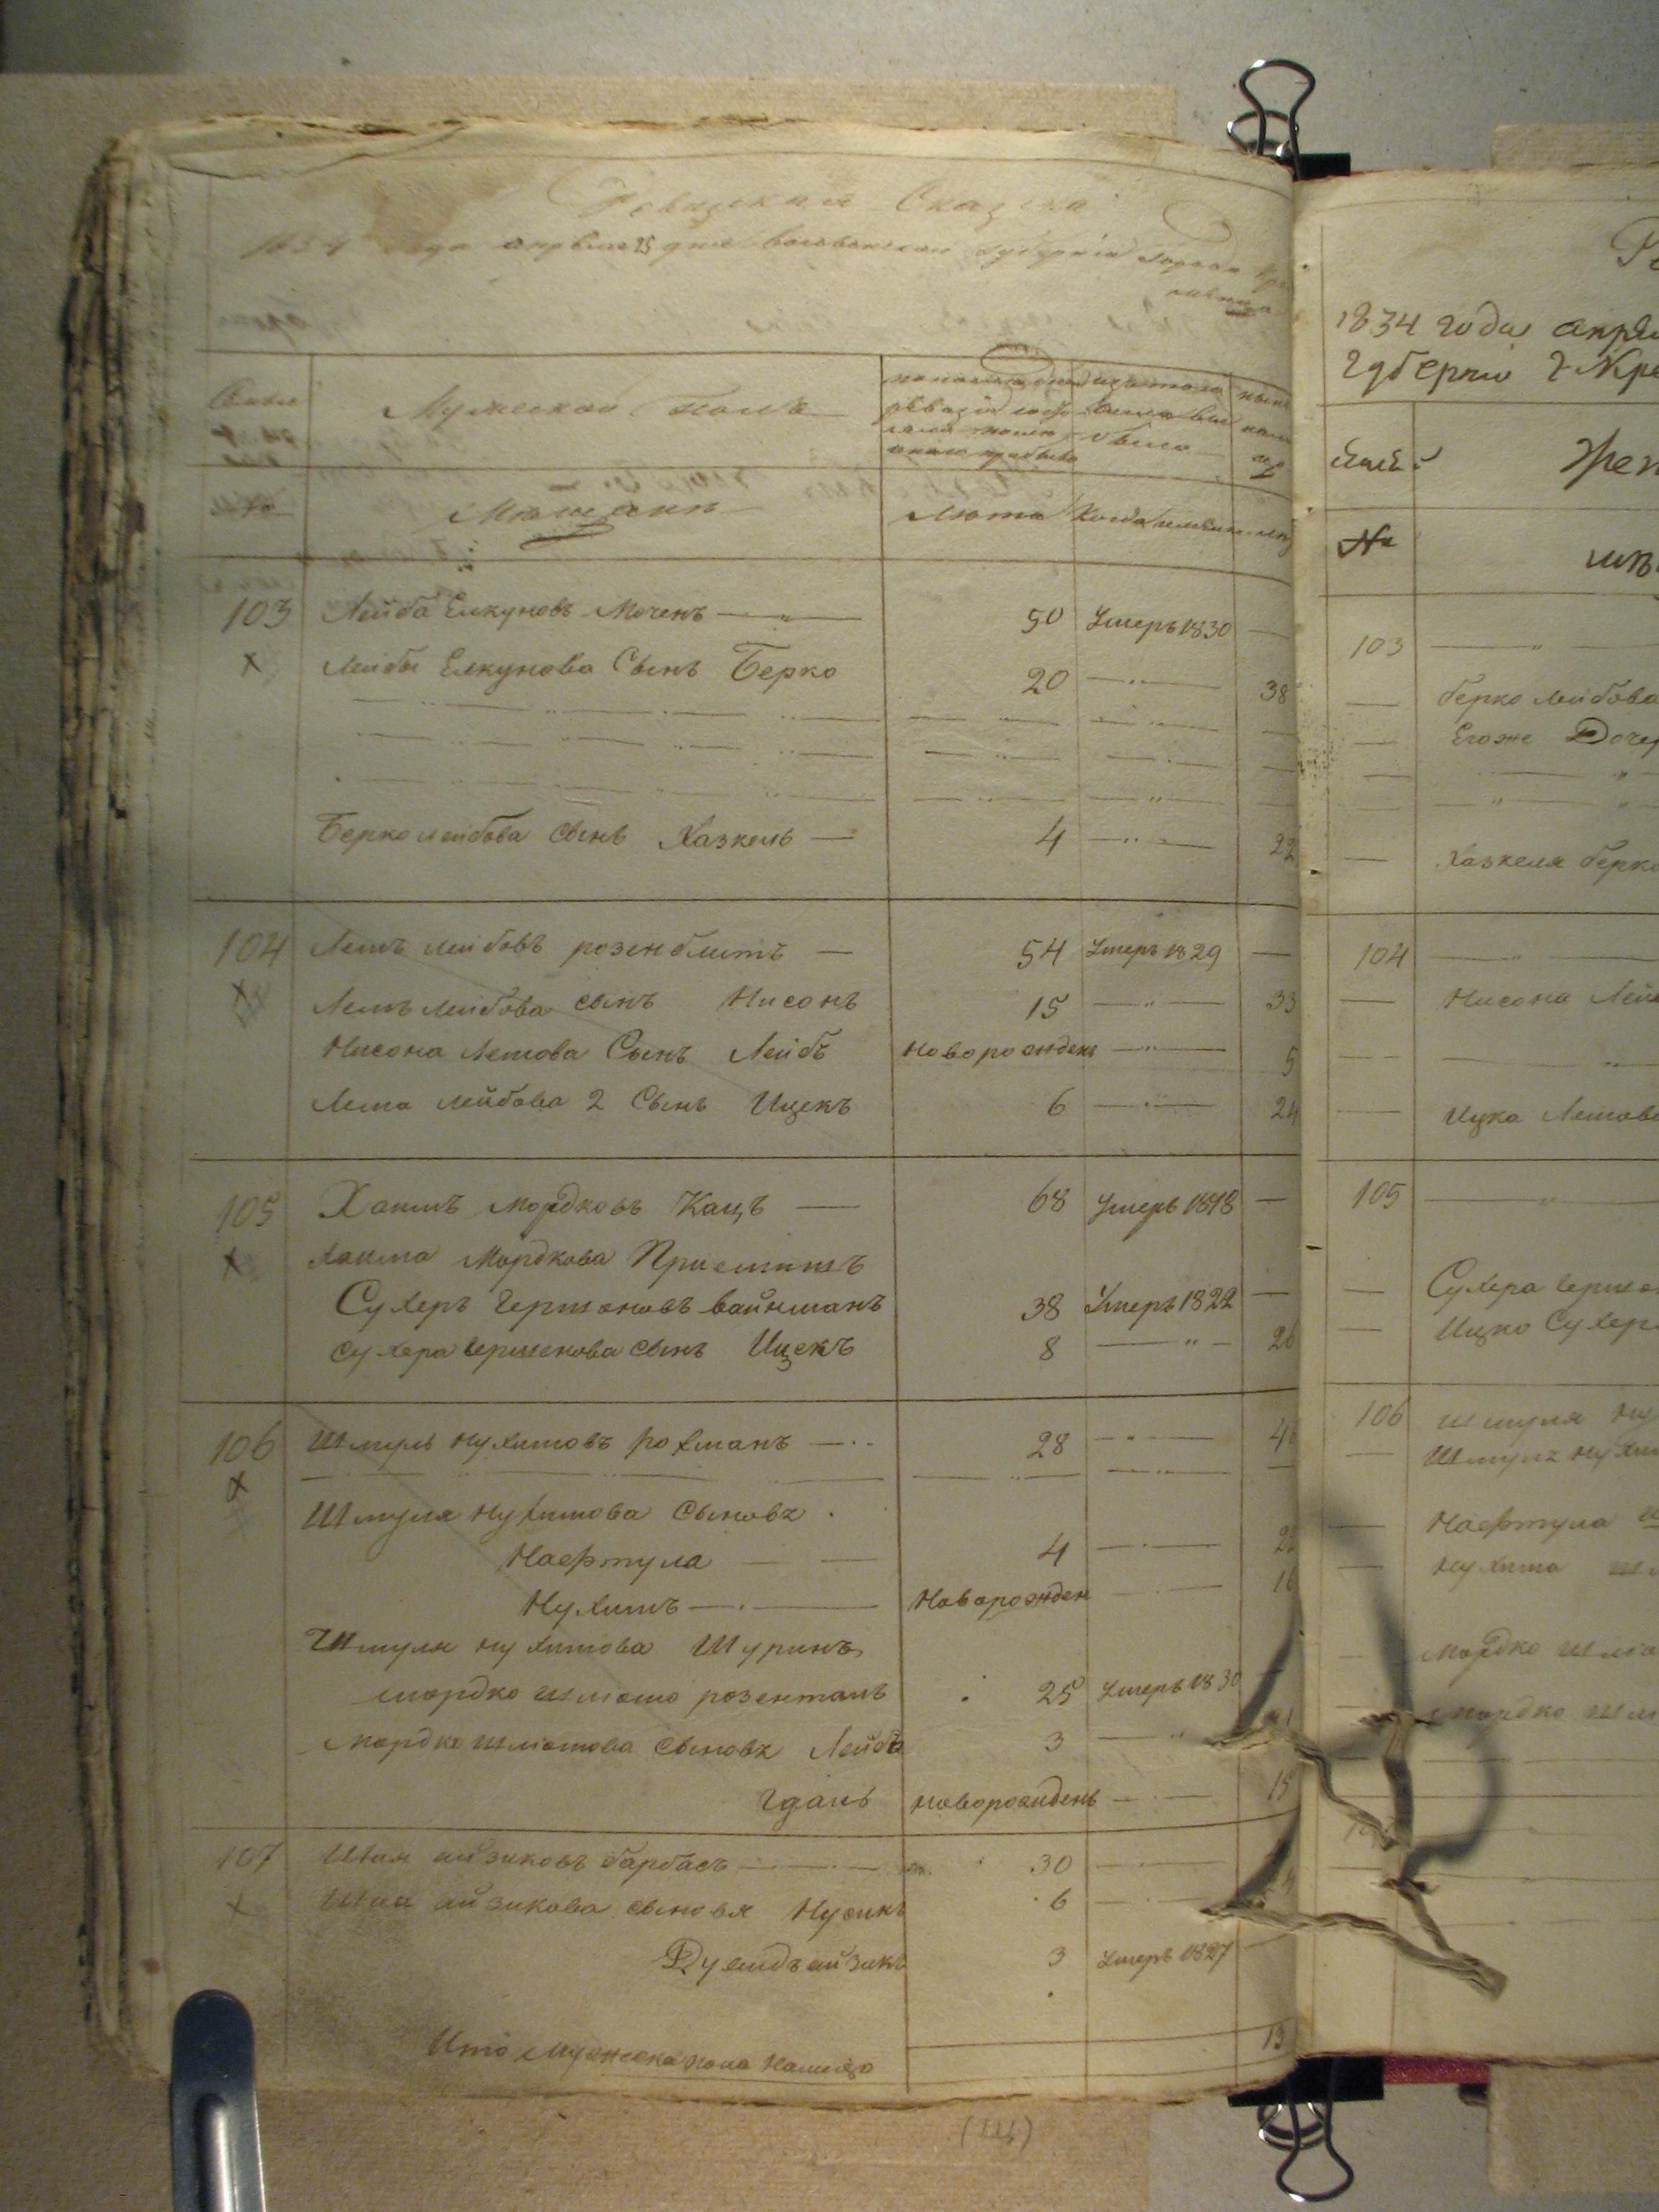 Ревизская Сказка
1834 года апреля 25 дня Волынской Губернии Города Кре
менца
Мужеской полъ
№ Мещанѣ Лѣта Когда именно
103 Лейба Елкуновъ Моченъ — 50 Умеръ 1830 —
Лейбы Елкунова Сынъ Берко 20 — 38
Берко Лейбова Сынъ Хазкель — 4 — 22
104 Лемъ Лейбовъ розенблитъ — 54 Умеръ 1829 —
Лемъ Лейбова сынъ Нисонъ 15 — 33
Нисона Лемова Сынъ Лейбъ Новорожденъ — 5
Лема Лейбова 2 Сынъ Ицекъ 6 — 24
105 Хаимъ Мордковъ Кацъ — 68 Умеръ 1818 —
Хаима Мордкова Приемишъ
Сухеръ Гершоновъ вайнманъ 38 Умеръ 1822 —
Сухера Гершенова сынъ Ицекъ 8 — 26
106 Шмуль Нухимовъ рохманъ — 28 — 4
Шмуля Нухимова Сыновя
Нафтула — 4 — 2
Нухимъ — Новорожден — 16
Шмуля Нухимова Шуринъ
Мордко Шлiомо розенталь 25 Умеръ 1830 —
Мордко Шлiомова Сыновя Лейба 3 —
Гдаль новорожденъ — 15
107 Шая айзиковъ барбасъ — 30 —
Шая айзикова сыновья Нусинъ 6 —
Дувидъ айзикъ 3 Умеръ 1827
Итого Мужеска пола Налицо 13
1834 года апрѣл
Губернiи Г Кре
Семей Жен
№
103 —
— Берко Лейбова
— Егоже Дочер
— Хазкеля Берко
104 —
— Нисона Лем
— Ицка Лемов
105 —
— Сухера Гершо
— Ицко Сухер
106 Шмуля Ну
— Шмуля Нухим
— Нафтула Ш
— Нухима Шм
— Мордко Шлiо
Мордко Шлi